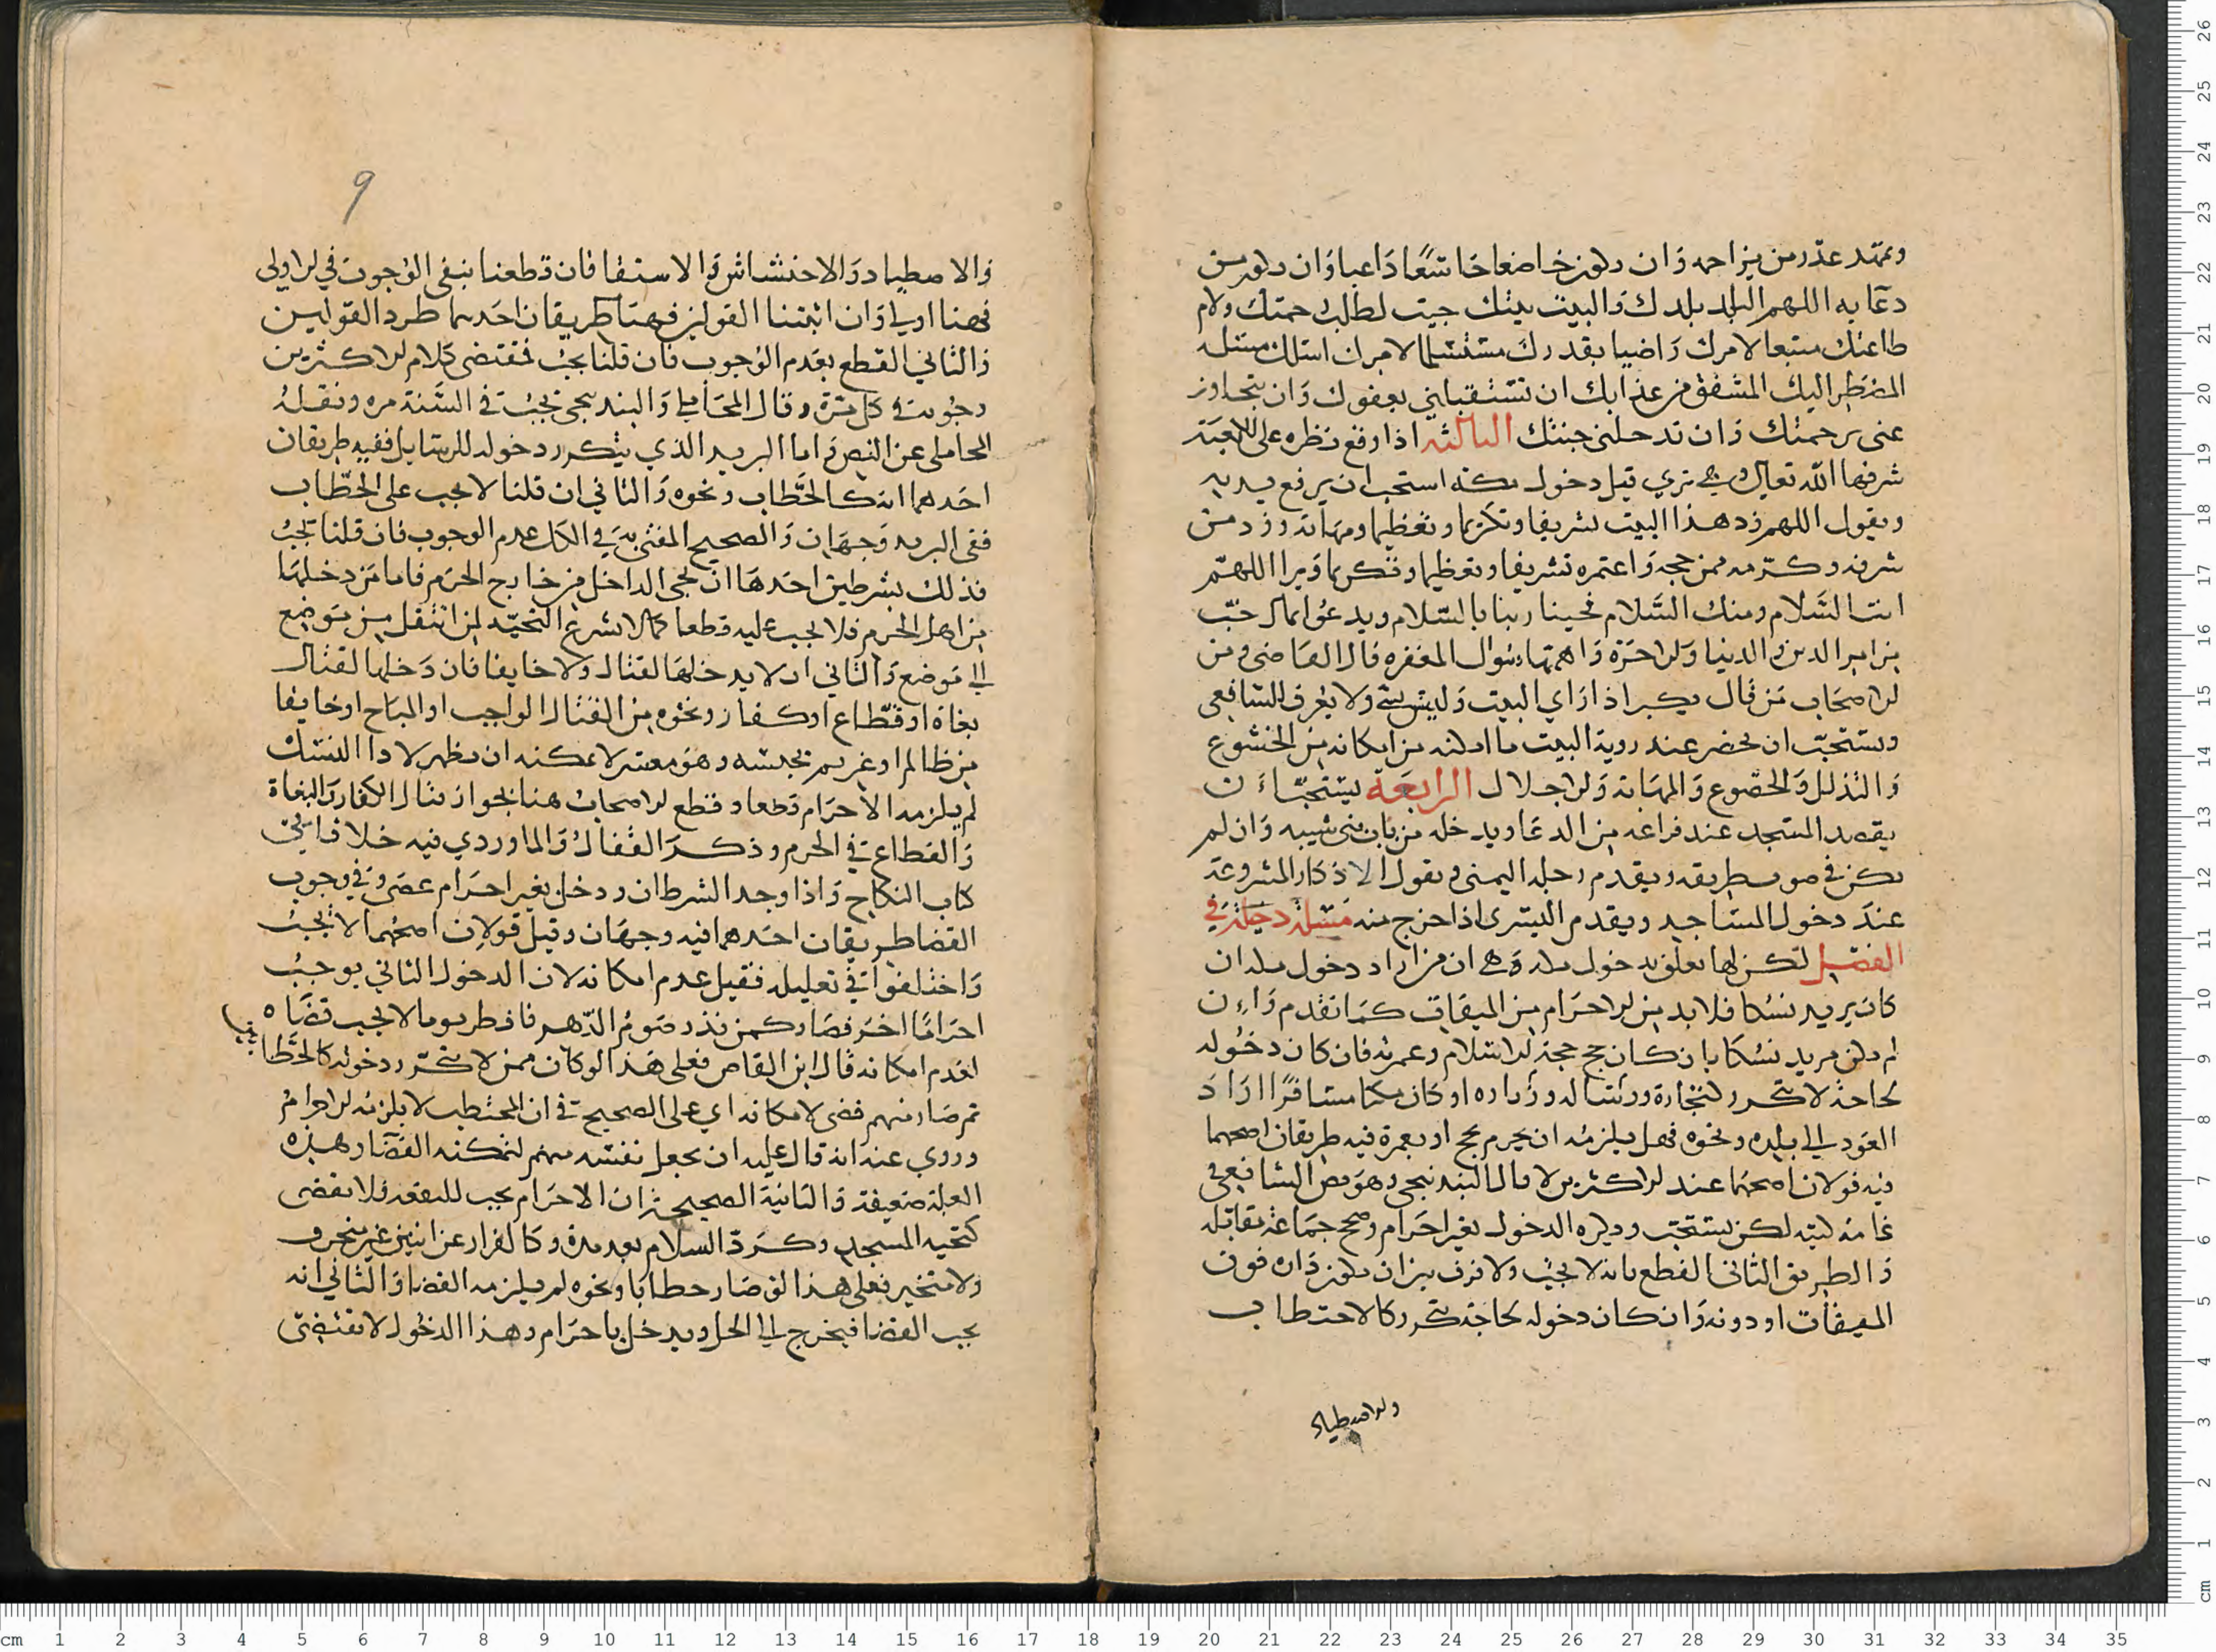 ويمهد عذر من يزاحمه وان يكون خاضعا خاشعا داعيا وان يكون من
دعايه اللهم البلد بلدك والبيت بيتك جيت لطلب رحمتك ولام
طاعتك متبعا لامرك راضيا بقدرك مستسلما لامرك اسالك مسئلة
المضطر اليك المشفق من عذابك ان تستقبلني بعفوك وان تتجاوز
عني برحمتك وان تدخلني جنتك الثالثة اذا وقع نظره على الكعبة
شرفها الله تعالى وهي تري قبل دخول مكة استحب ان يرفع يديه
ويقول اللهم زد هذا البيت تشريفا وتكريما وتعظيما ومهابة وزد من
شرفه وكرمه ممن حجه واعتمره تشريفا وتعظيما وتكريما وبرا اللهم
انت السلام ومنك السلام فحينا ربنا بالسلام ويدعوا بما احب
من امر الدين والدنيا والاخرة واهمها سوال المغفرة قال القاضي ومن
الاصحاب من قال يكبر اذا راي البيت وليس بشي ولا يعرف للشافعي
ويستحب ان يحضر عند روية البيت ما امكنه من الخشوع
والتذلل والخضوع والمهابة والاجلال الرابعة يستحب ان
يقصد المسجد عند فراغه من الدعا ويدخله من باب بني شيبه وان لم
يكن في صوب طريقه ويقدم رجله اليمنى ويقول الاذكار المشروعة
عند دخول المساجد ويقدم اليسرى اذا خرج منه مسئلة دخيلة في
الفصل لكن لها تعلق بدخول مكة وهي ان من اراد دخول مكة ان
كان يريد نسكا فلا بد من الاحرام من الميقات كما تقدم وان
لم يكن مريد نسكا بان كان حج حجة الاسلام وعمرته فان كان دخوله
لحاجة لا تتكرر لتجارة ورسالة وزيارة او كان مكيا مسافرا اراد
العود الى بلده ونحوه فهل يلزمه ان يحرم بحج او بعمرة فيه طريقان اصحهما
فيه قولان اصحهما عند الاكثرين لا قال البندنيجي وهو نص الشافعي في
عامة كتبه لكن يستحب ويكره الدخول بغير احرام وصحح جماعة مقابله
والطريق الثاني القطع بانه لا يجب ولا فرق بين ان يكون داره فوق
الميقات او دونه وان كان دخوله لحاجة تتكرر كالاحتطاب
والاصطياد
9
والاصطياد والاحتشاش والاستقا فان قطعنا بنفي الوجوب في الاولى
فهنا اولى وان اثبتنا القولين فهنا طريقان احدهما طرد القولين
والثاني القطع بعدم الوجوب فان قلنا يجب فمقتضى كلام الاكثرين
وجوبه في كل مرة وقال المحاملي والبندنيجي يجب في السنة مرة ونقله
المحاملي عن النص واما البريد الذي يتكرر دخوله للرسايل ففيه طريقان
احدهما انه كالحطاب ونحوه والثاني ان قلنا لا يجب على الحطاب
ففي البريد وجهان والصحيح المفتى به في الكل عدم الوجوب فان قلنا يجب
فذلك بشرطين احدها ان يجي الداخل من خارج الحرم فاما من دخلها
من اهل الحرم فلا يجب عليه قطعا كما لا تشرع التحية لمن انتقل من موضع
الى موضع والثاني ان لا يدخلها لقتال ولا خايفا فان دخلها لقتال
بغاة او قطاع او كفار ونحوه من القتال الواجب او المباح او خايفا
من ظالم او غريم يحبسه وهو معسر لا يمكنه ان يظهر لادا النسك
لم يلزمه الاحرام قطعا وقطع الاصحاب هنا بجواز قتال الكفار والبغاة
والقطاع في الحرم وذكر القفال والماوردي فيه خلافا في
كتاب النكاح واذا وجد الشرطان ودخل بغير احرام عصى وفي وجوب
القضا طريقان احدهما فيه وجهان وقيل قولان اصحهما لا يجب
واختلفوا في تعليله فقيل عدم امكانه لان الدخول الثاني يوجب
احراما اخر فصار كمن نذر صوم الدهر فافطر يوما لا يجب قضاه
لعدم امكانه قال ابن القاص فعلى هذا لو كان ممن لا يتكرر دخوله كالحطاب
ثم صار منهم قضى لامكانه اي على الصحيح في ان المحتطب لا يلزمه الاحرام
وروي عنه انه قال عليه ان يجعل نفسه منهم لتمكنه القضا وهذه
العلة ضعيفة والثانية الصحيحة ان الاحرام يجب للبقعة فلا يقضى
كتحية المسجد وكرد السلام بعد مدة وكالفرار عن اثنين غير متحرف
ولا متحيز فعلى هذا لو صار حطابا ونحوه لم يلزمه القضا والثاني انه
يجب القضا فيخرج الى الحل ويدخل باحرام وهذا الدخول لا يقتضي